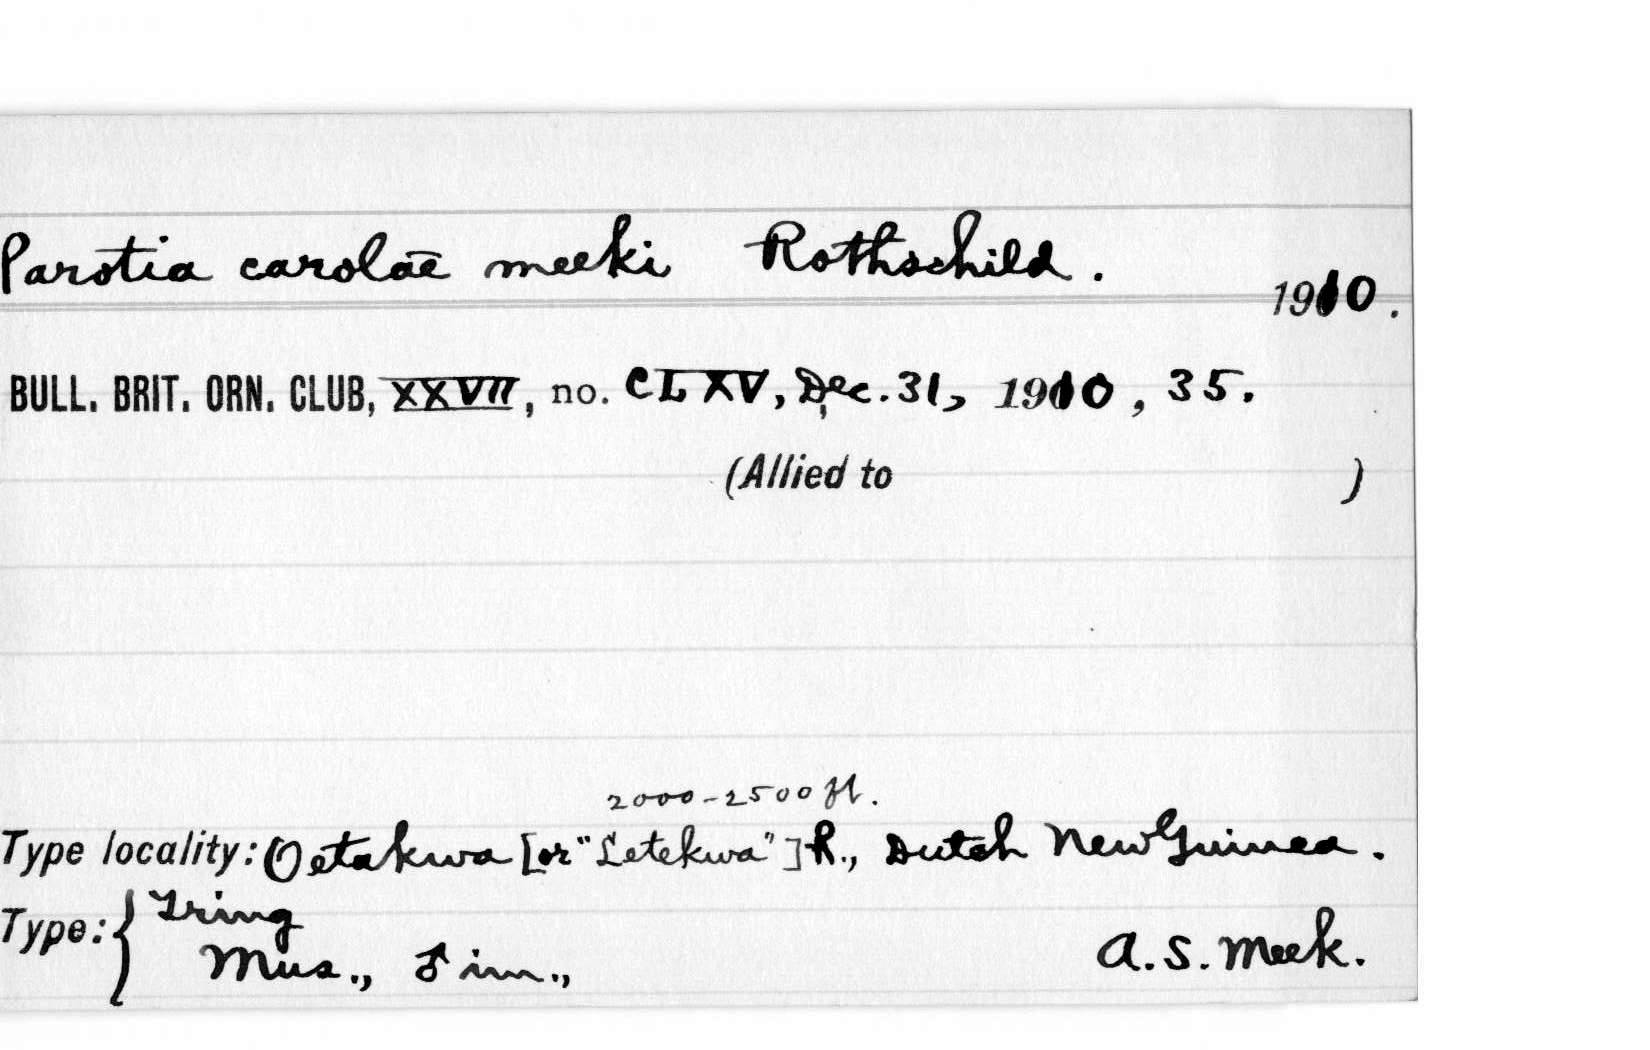 Parotia carolae meeki Rothschild.
1910.
BULL. BRIT. ORN. CLUB, XXVII, no. CLXV, Dec. 31, 1910, 35.
(Allied to )
2000-2500 ft.
Type locality: Oetakwa [or "Letekwa"] R., Dutch New Guinea.
Type: { Tring
Mus., ♂ im., A. S. Meek.